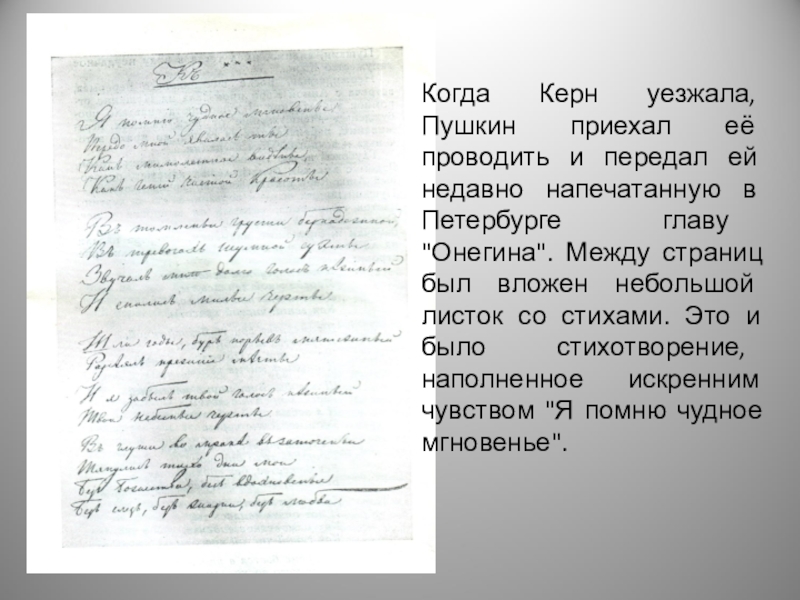 Къ ***
Я помню чудное мгновенье
Передо мной явилась ты
Какъ мимолетное видѣнье
Какъ геній чистой красоты
Въ томленьи грусти безнадежной,
Въ тревогахъ шумной суеты
Звучалъ мнѣ долго голосъ нѣжный
И снились милые черты.
Шли годы, бурь порывъ мятежный
Разсѣялъ прежнія мечты
И я забылъ твой голосъ нѣжный
Твои небесныя черты
Въ глуши во мракѣ заточенья
Тянулись тихо дни мои
Безъ божества, безъ вдохновенья
Безъ слезъ, безъ жизни, безъ любви
Когда Керн уезжала,
Пушкин приехал её
проводить и передал ей
недавно напечатанную в
Петербурге главу
"Онегина". Между страниц
был вложен небольшой
листок со стихами. Это и
было стихотворение,
наполненное искренним
чувством "Я помню чудное
мгновенье".